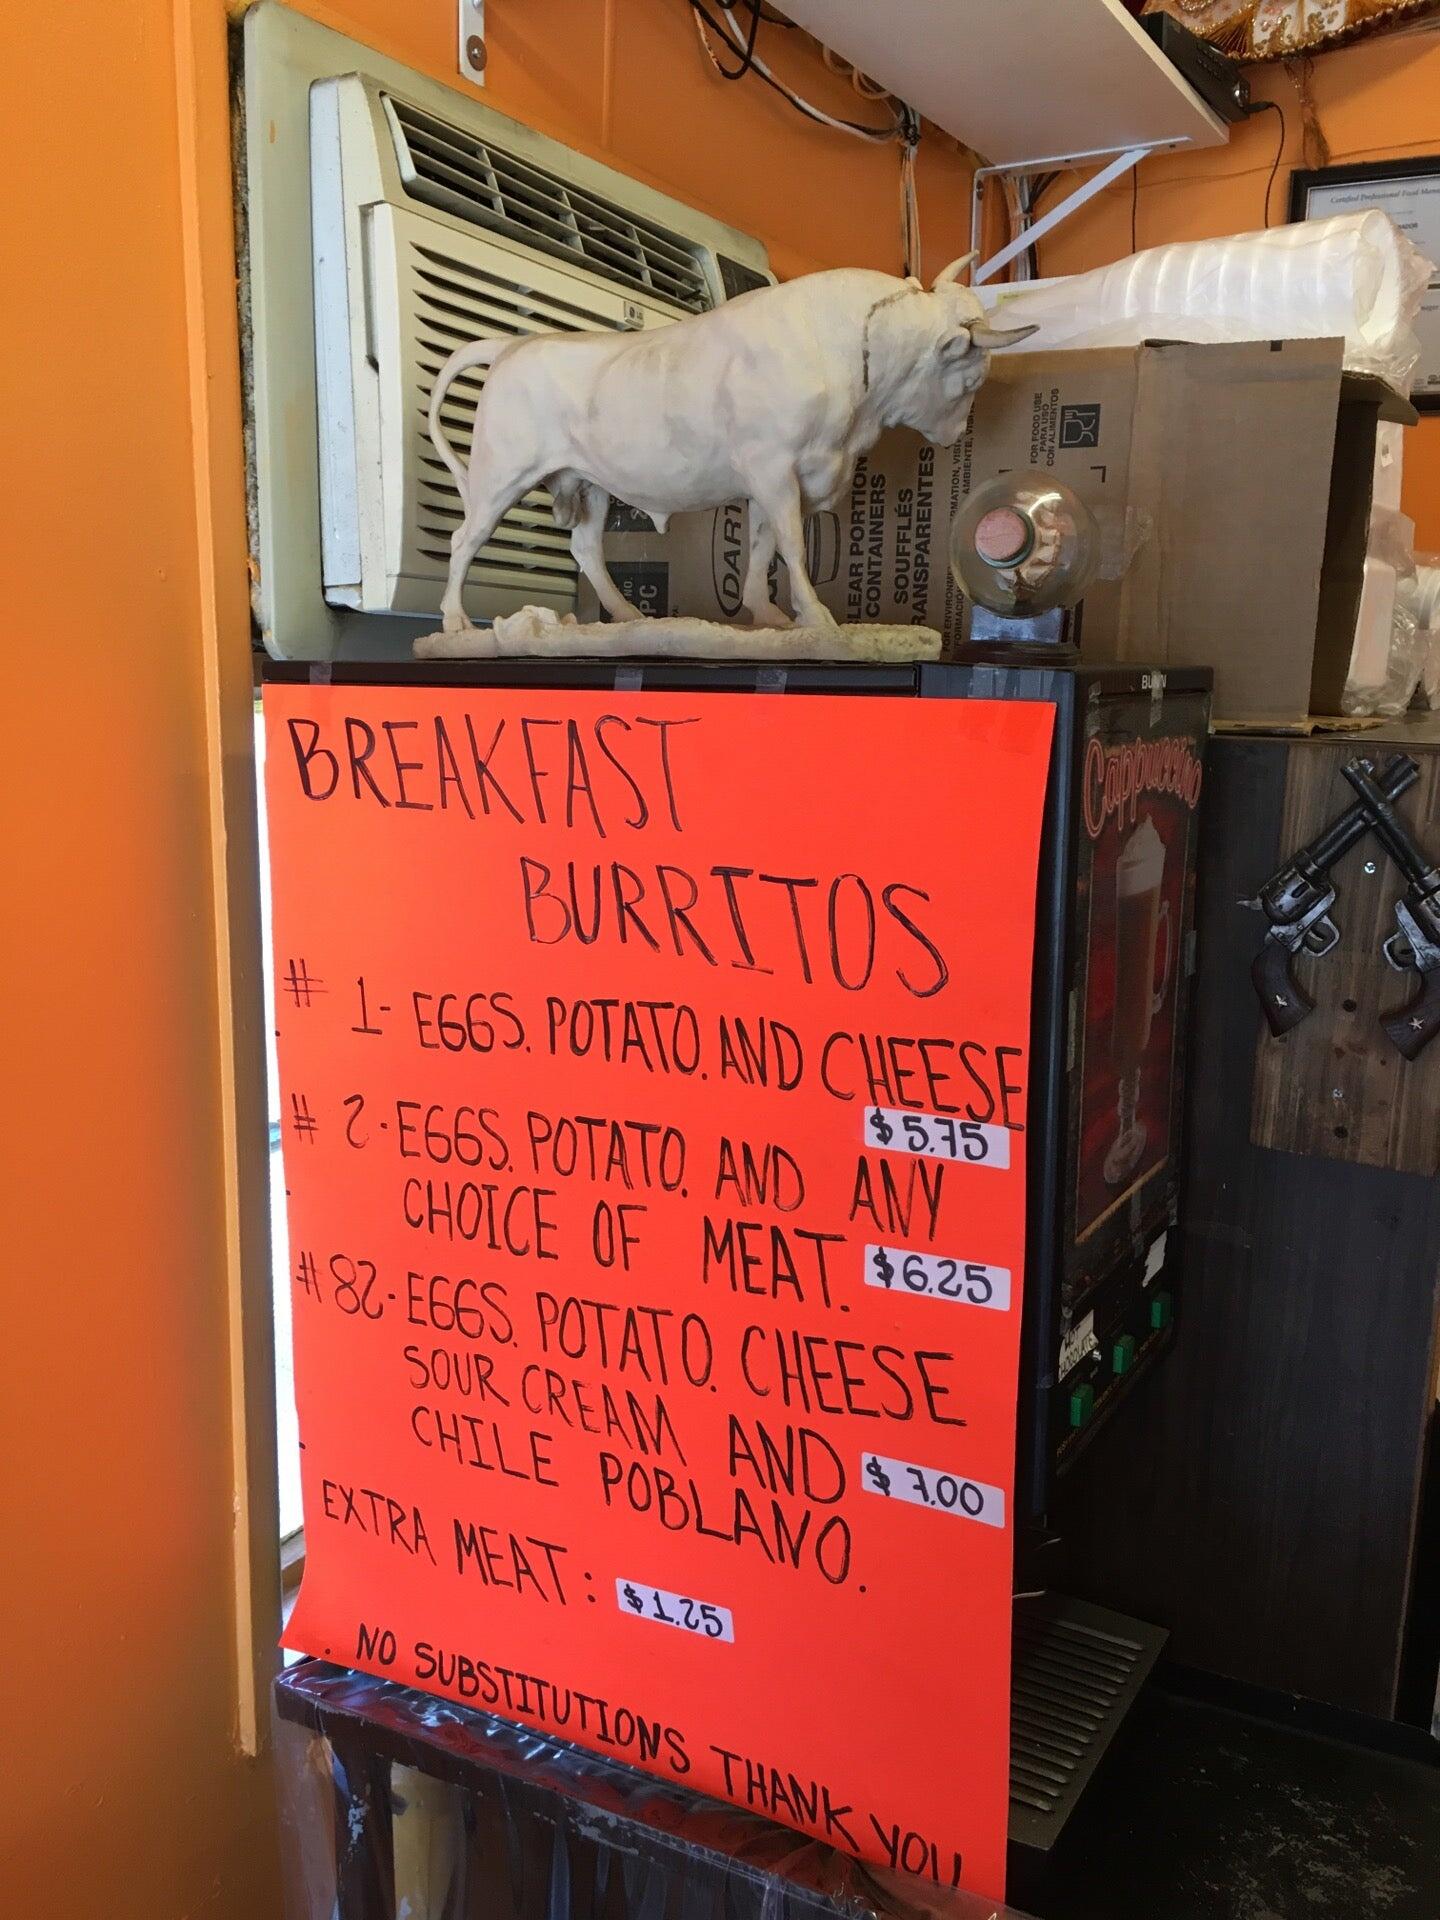 Certified Professional Food Mana
FOR FOOD USE
PARA USO
CON ALIMENTOS
DART
CLEAR PORTION
CONTAINERS
SOUFFLÉS
TRANSPARENTES
NO.
PC
BUNN
Cappuccino
HOT
CHOCOLATE
BREAKFAST
BURRITOS
# 1- EGGS. POTATO. AND CHEESE
$5.75
# 2- EGGS. POTATO. AND ANY
CHOICE OF MEAT. $6.25
# 82- EGGS. POTATO. CHEESE
SOUR CREAM AND
CHILE POBLANO. $7.00
EXTRA MEAT: $1.25
. NO SUBSTITUTIONS THANK YOU